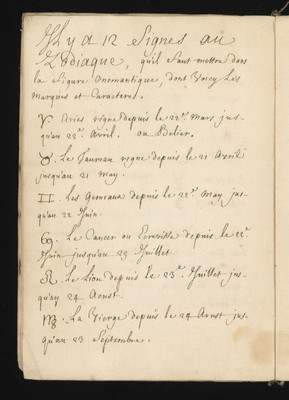 Il y a 12 Signes au
Zodiaque, qu'il faut mettre dans
la figure Onomantique, dont Voicy Les
Marques et Caracteres.
♈. Aries regne depuis le 22e. Mars jus-
qu'au 22e. Avril. ou Belier.
♉. Le Taureau regne depuis le 21 Avril
jusqu'au 21 may.
♊. Les Gemeaux depuis le 22e. May jus-
qu'au 22 Juin.
♋. Le Cancer ou Ecrevisse depuis le 22e.
Juin jusqu'au 23 Juillet.
♌. Le Lion depuis le 23e. Juillet jus-
qu'au 24 Aoust.
♍. La Vierge depuis le 24 Aoust jus-
qu'au 23 Septembre.